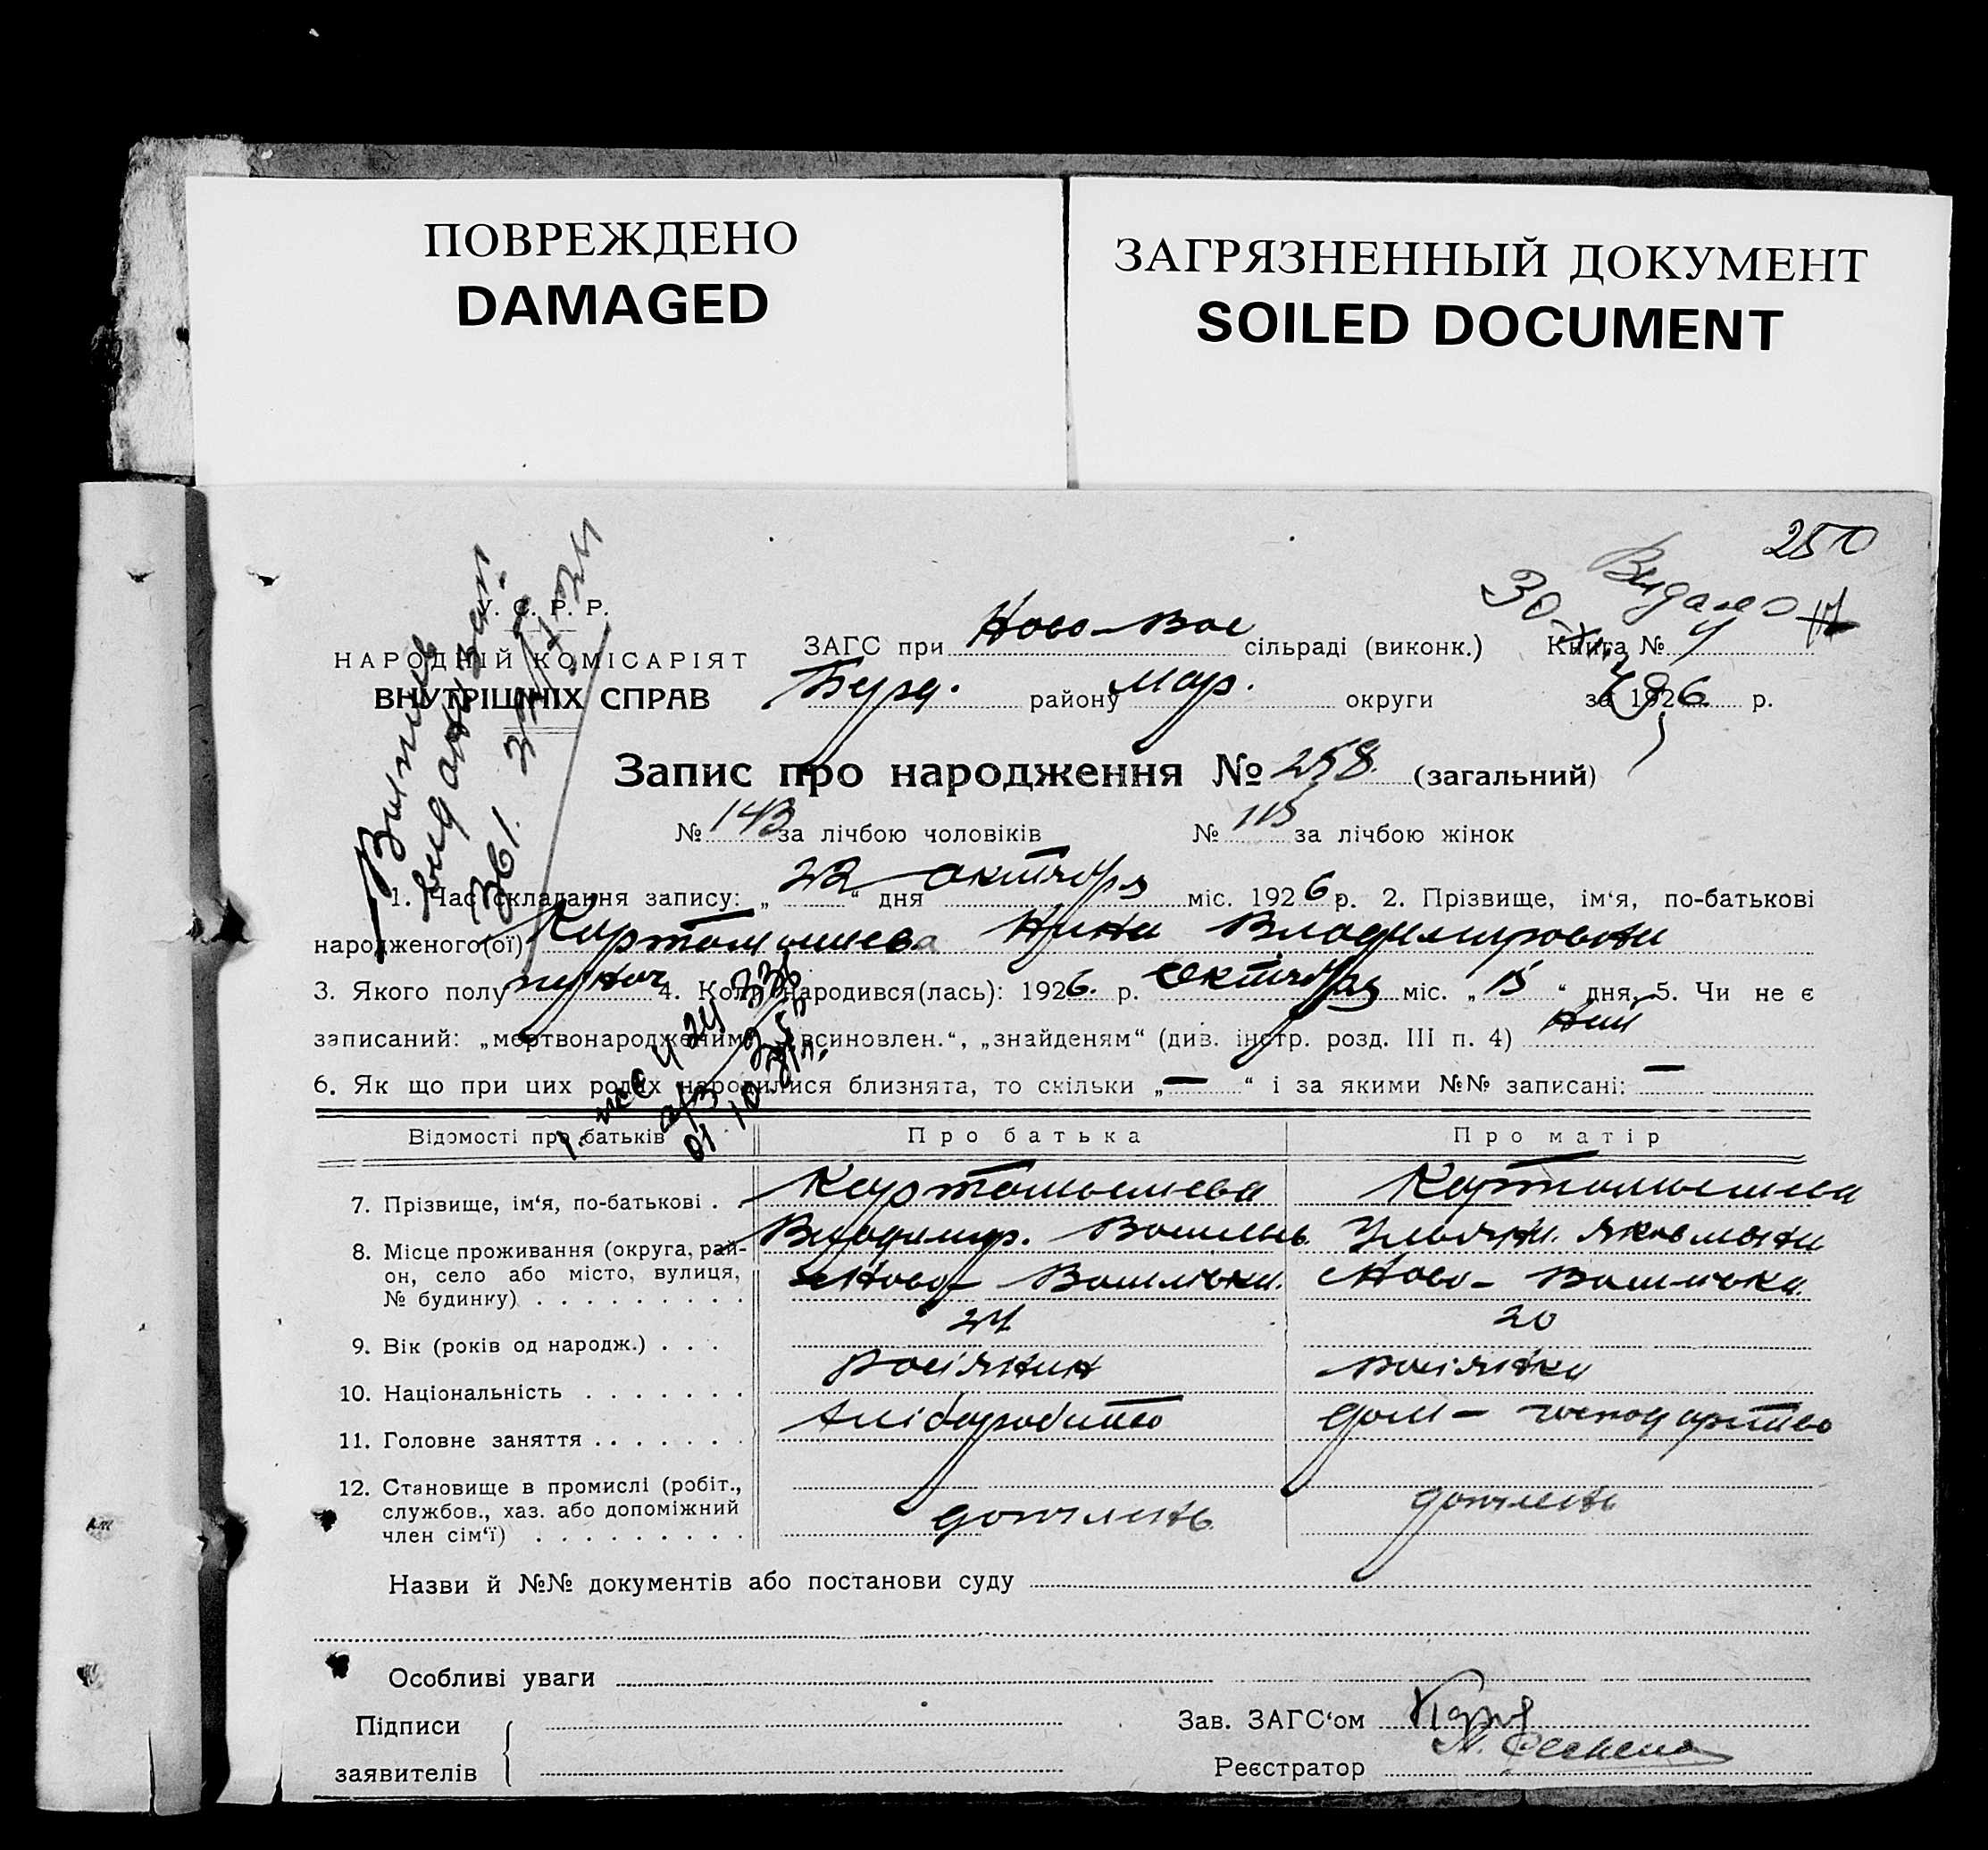 ПОВРЕЖДЕНО
DAMAGED
ЗАГРЯЗНЕННЫЙ ДОКУМЕНТ
SOILED DOCUMENT
250
Видано
У. С. Р. Р.
НАРОДНІЙ КОМІСАРІЯТ
ВНУТРІШНІХ СПРАВ
ЗАГС при Ново-Вас сільраді (виконк.) Книга № 4
району Мар. округи за 1926 р.
Запис про народження № 258. (загальний)
№ 143 за лічбою чоловіків № 115 за лічбою жінок
1. Час складання запису: „22“ дня октября міс. 1926 р. 2. Прізвище, ім'я, по-батькові
народженого(ої) Картамишева Нина Владимировна
3. Якого полу жіноч 4. Коли народився(лась): 1926. р. Октября міс. „15“ дня. 5. Чи не є
записаний: „мертвонародженим“, „всиновлен.“, „знайденям“ (див. інстр. розд. III п. 4) ні
6. Як що при цих родах народилися близнята, то скільки „—“ і за якими №№ записані: —
Відомості про батьків Про батька Про матір
7. Прізвище, ім'я, по-батькові . . Картамышева Картамышева
Владимир. Васильев. Ульяна Яковлевна
8. Місце проживання (округа, рай-
он, село або місто, вулиця,
№ будинку) . . . . . . . . . Ново-Васильевка. Ново-Васильевка.
9. Вік (років од народж.) . . . 24 20
10. Національність . . . . . . . росіянин росіянка
11. Головне заняття . . . . . . . хліборобство дом-господарство
12. Становище в промислі (робіт.,
службов., хаз. або допоміжний
член сім'ї) . . . . . . . . . допчлень допчлень
Назви й №№ документів або постанови суду
Особливі уваги
Підписи
заявителів
Зав. ЗАГС'ом
Реєстратор